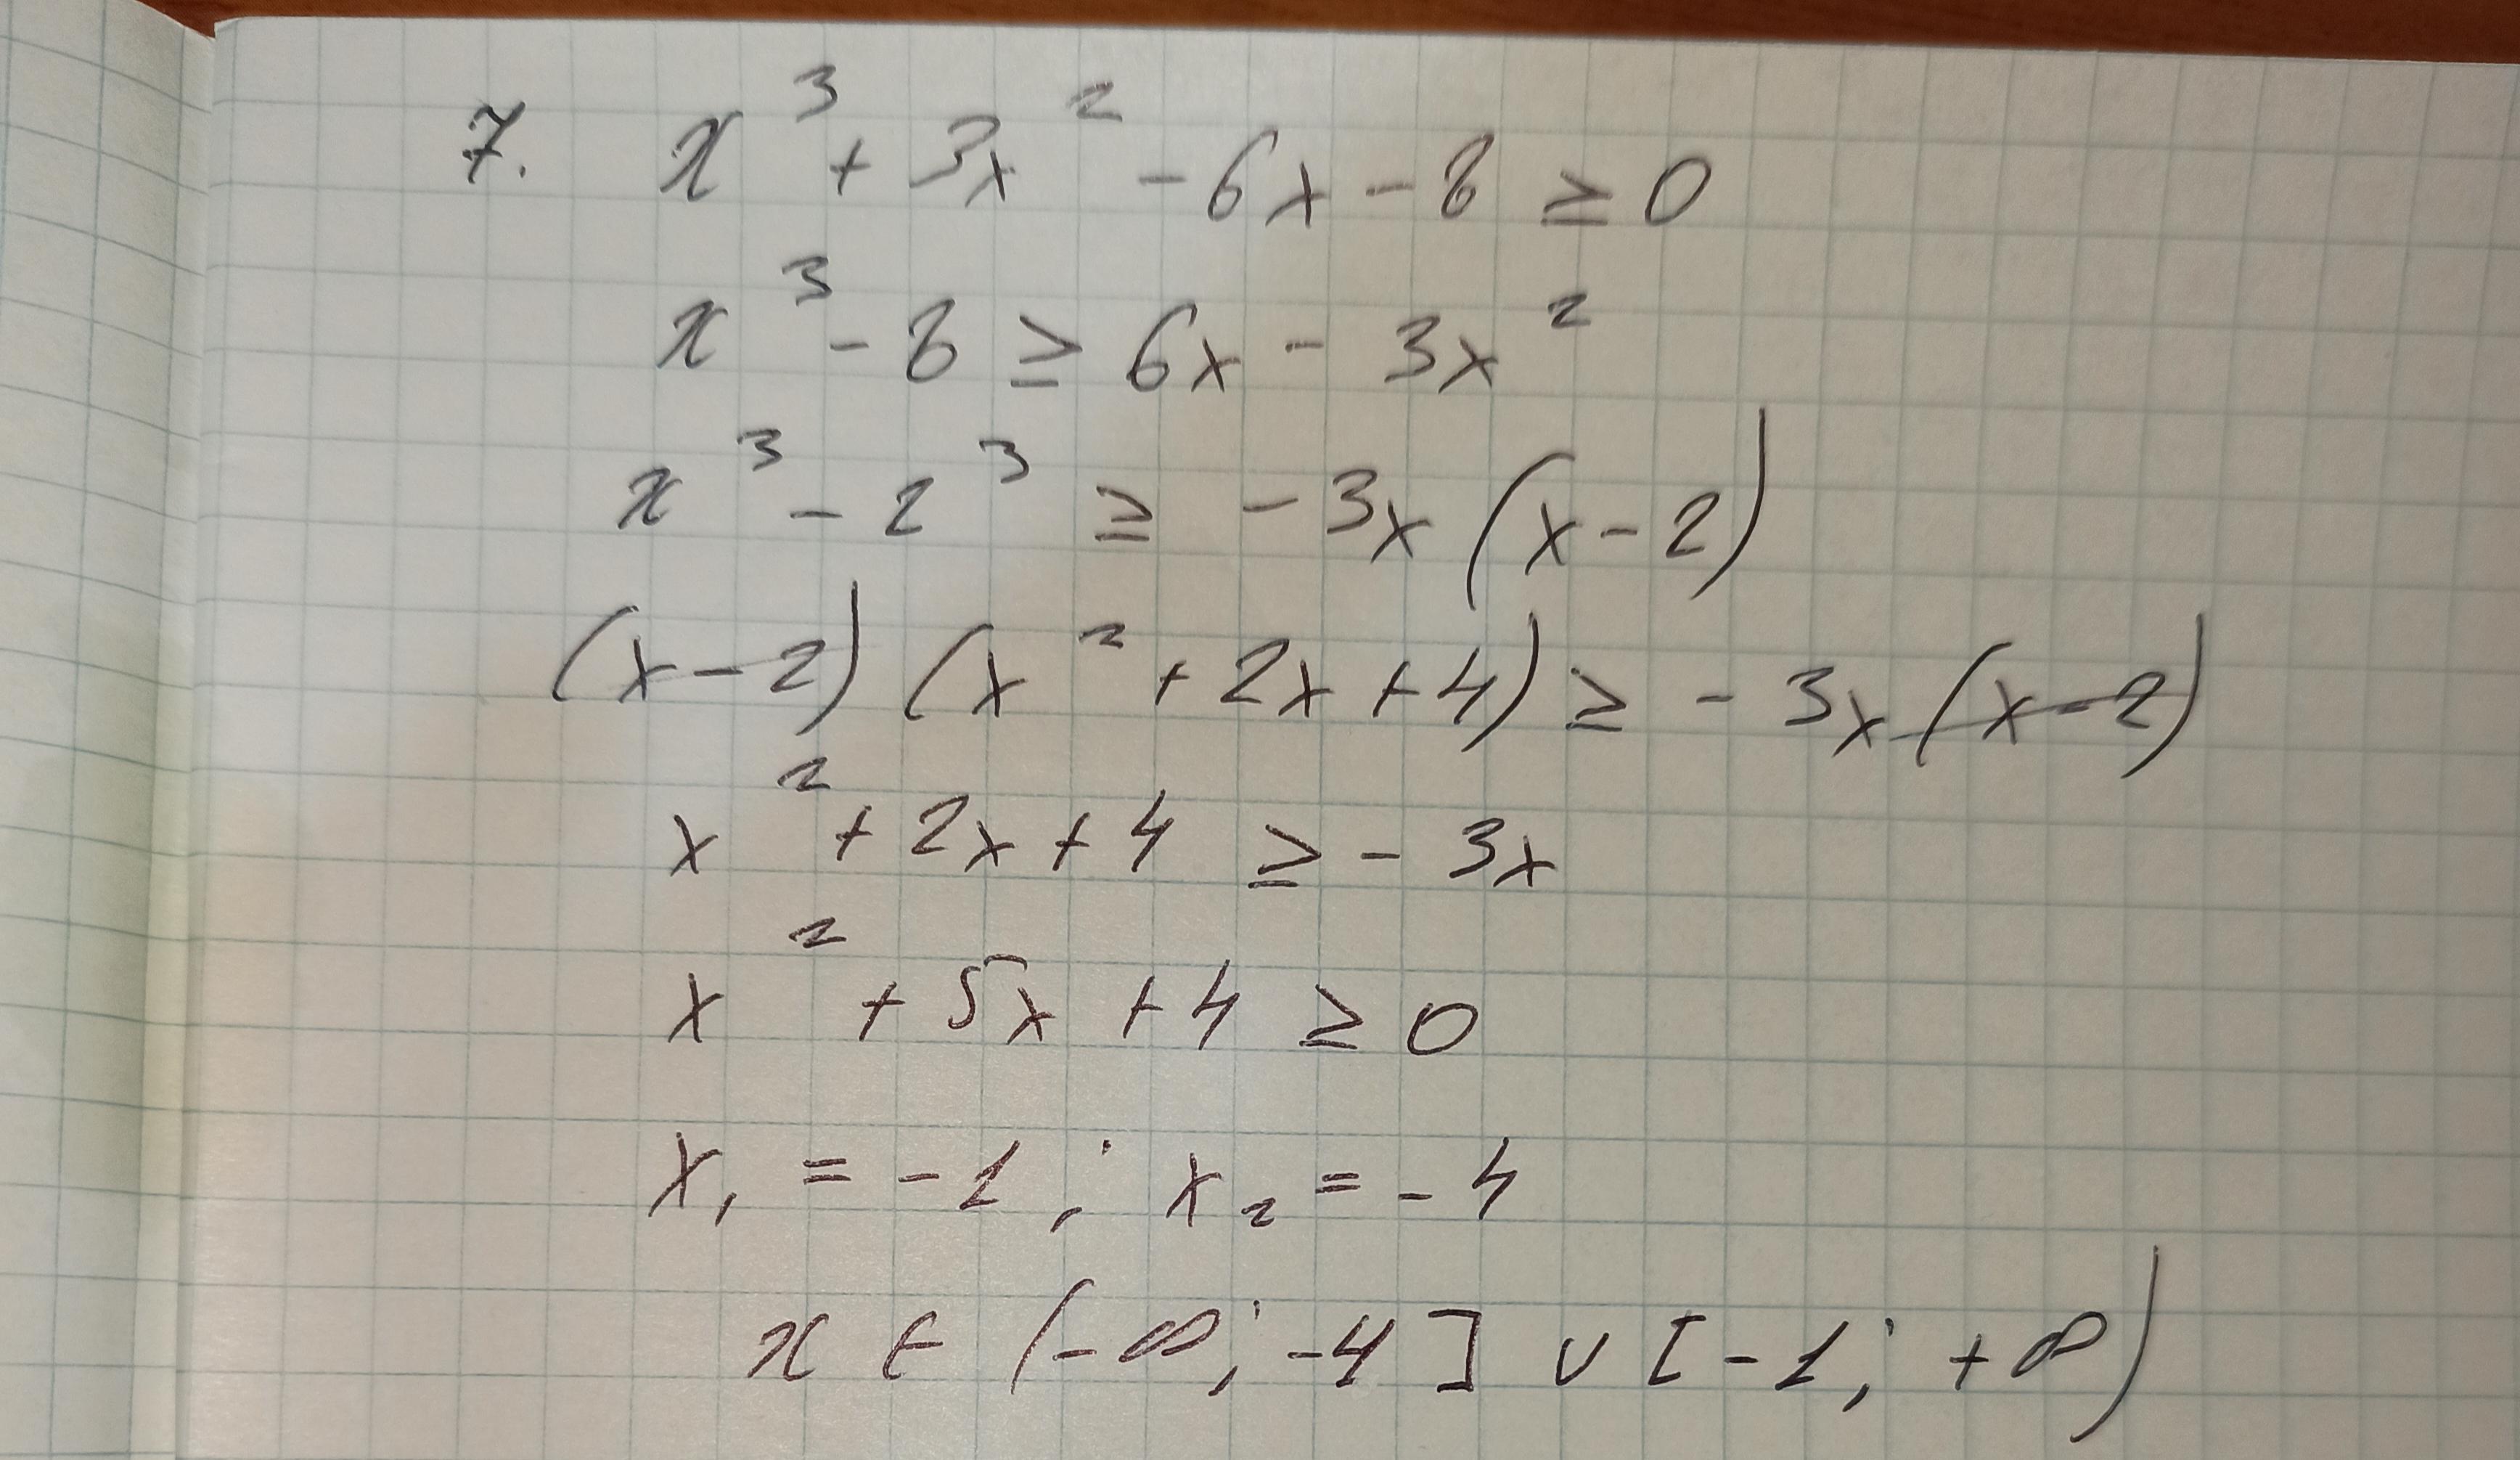 7. x³ + 3x² - 6x - 8 ≥ 0
x³ - 8 ≥ 6x - 3x²
x³ - 2³ ≥ -3x (x - 2)
(x - 2) (x² + 2x + 4) ≥ -3x (x - 2)
x² + 2x + 4 ≥ -3x
x² + 5x + 4 ≥ 0
x₁ = -1 ; x₂ = -4
x ∈ (-∞; -4] ∪ [-1; +∞)